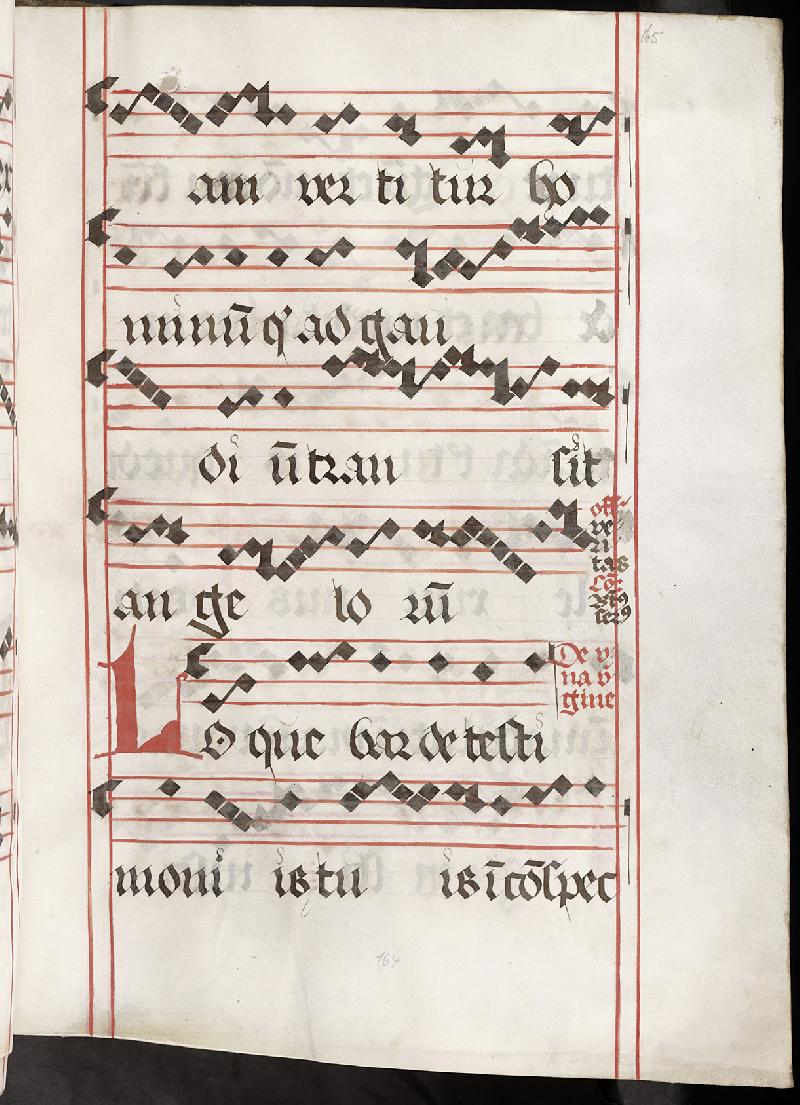 165
am ver ti tur ho
minū q' ad gau
di ū tran sit
an ge lo rū
off
ve
ri
tas
Lo que bar de testi
De v
na v
gine
moni is tu is ī cōspec
164